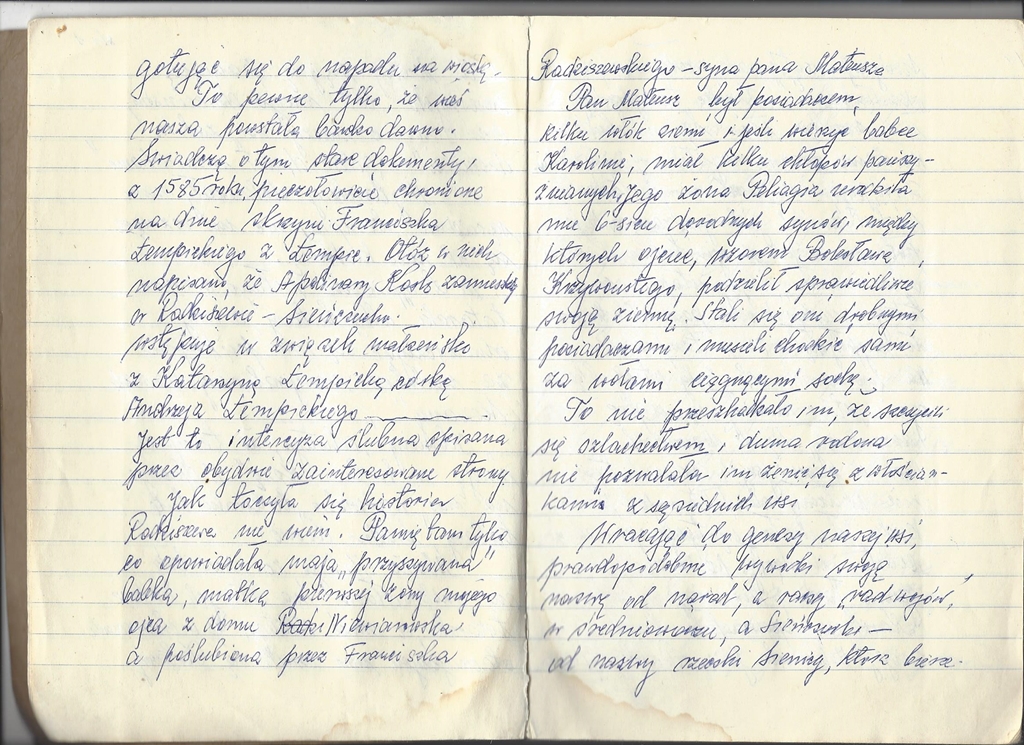 gotując się do napadu na wioskę.
To pewne tylko, że wieś
nasza powstała bardzo dawno.
Świadczą o tym stare dokumenty,
z 1585 roku, pieczołowicie chronione
na dnie skrzyni Franciszka
Łempickiego z Łempic. Otóż w nich
napisano, że Apolinary Kosk zamieszkały
w Radziszewie – Sieńczuchu.
wstępuje w związek małżeński
z Katarzyną Łempicką córką
Andrzeja Łempickiego
Jest to intercyza ślubna spisana
przez obydwie zainteresowane strony
Jak toczyła się historia
Radziszewa nie wiem. Pamiętam tylko
co opowiadała moja „przyszywana”
babka, matka pierwszej żony mojego
ojca z domu Niewiarowska
a poślubiona przez Franciszka
Radziszewskiego – syna pana Mateusza
Pan Mateusz był posiadaczem,
kilku włók ziemi i jeśli wierzyć babce
Karolinie, miał kilku chłopów pańszy-
źnianych, Jego żona Pelagia urodziła
mu 6-ciu dorodnych synów, między
których ojciec, wzorem Bolesława
Krzywoustego, podzielił sprawiedliwie
swoją ziemię. Stali się oni drobnymi
posiadaczami i musieli chodzić sami
za wołami ciągnącymi sochę.
To nie przeszkadzało im, że szczycili
się szlachectwem i duma rodowa
nie pozwalała im żenić się z włościan-
kami z sąsiednich wsi
Wracając do genezy naszej wsi,
prawdopodobnie wywodzi swoją
nazwę od narad, a raczej „rad wojów”,
w średniowieczu, a Sieńczuch –
od nazwy rzeczki Siennicy, która bierze